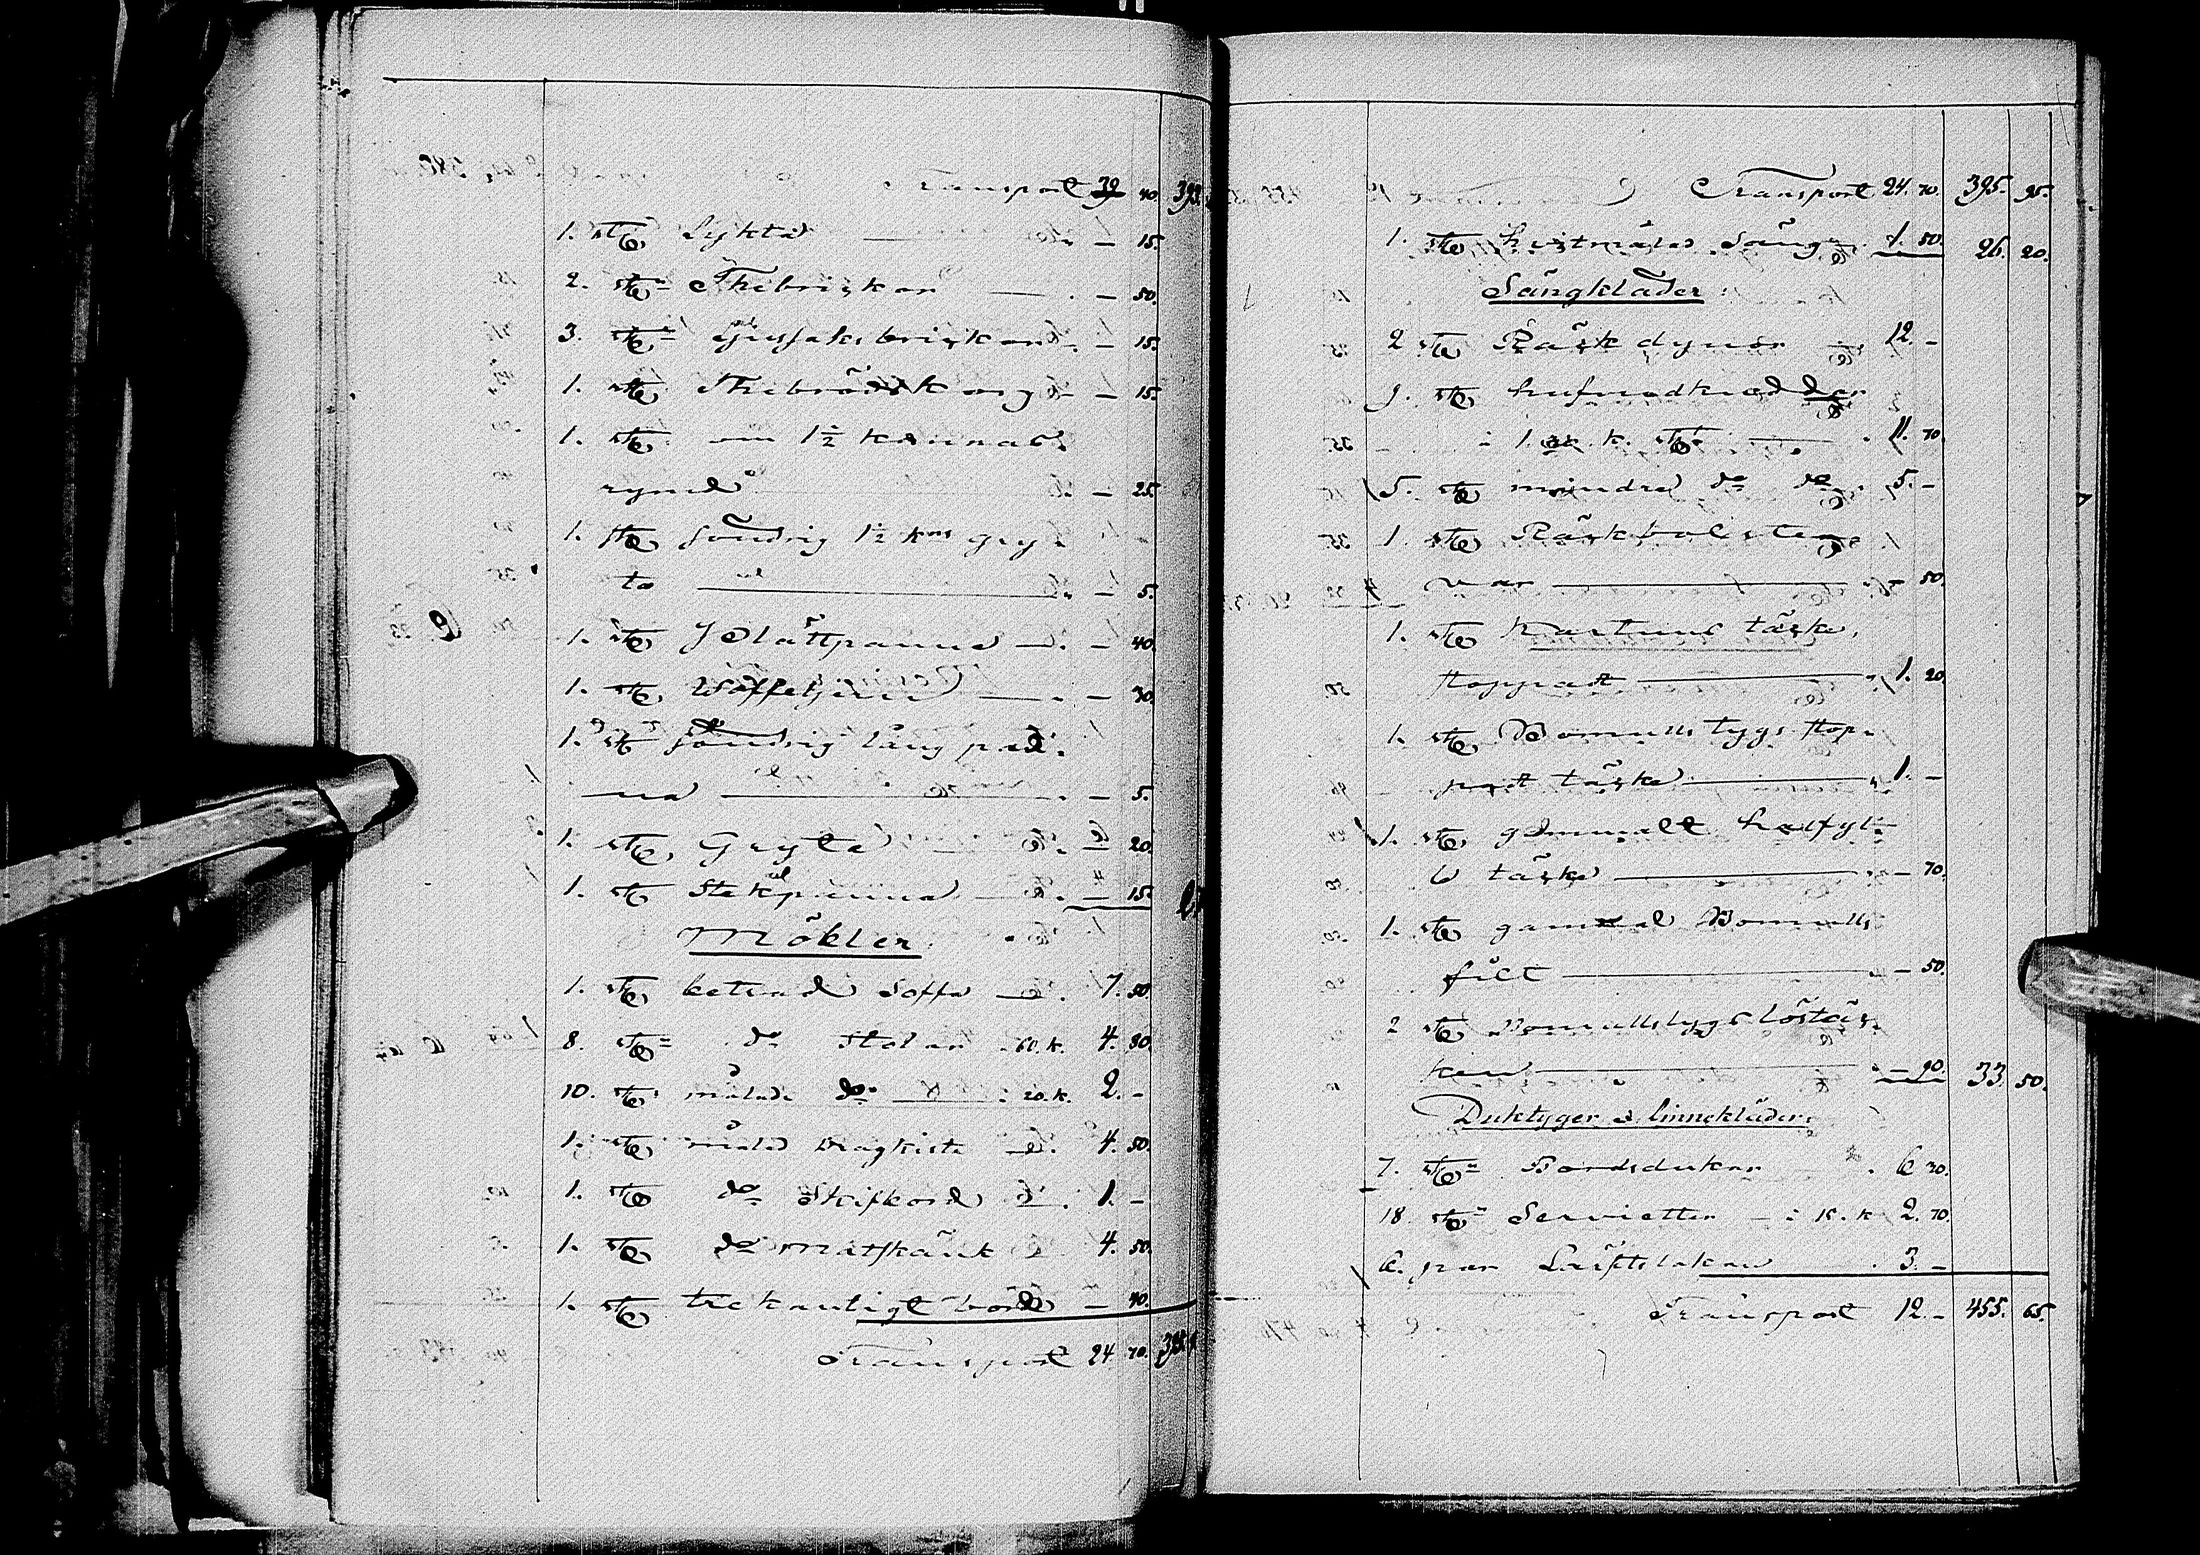 Transport 39 40. 393.
1. st Lykta — 15.
2. st Thebrickor — 50.
3. st Ljussaksbrickor — 15.
1. st Thebrödskorg — 15.
1. st om 1½ kannas
rymd — 25.
1. st söndrig 1½ kns gry-
ta — 5.
1. st Plättpanna — 40.
1. st Woffeljern — 30.
1. st söndrig lång pan-
na — 5.
1. st Gryta — 20.
1. st Stekpanna — 15.
Möbler
1. st betsad Soffa 7. 50.
8. st do Stolar 60. k. 4. 80.
10. st målade do 20. k. 2. –
1. st målad Dragkista 4. 50.
1. st do Skifbord 1. –
1. st do Matskänk 4. 50.
1. st trekantigt bord — 40.
Transport 24 70. 395.
Transport 24. 70. 395. 95.
1. st hvitmålad Säng 1. 50. 26. 20.
Sängkläder:
2 st Räsk dynor 12. –
9. st hufvudkuddar
i 1. k. st 11. 70
5. st mindre do do 5. –
1. st Räskbolster
var — 50.
1. st Kattuns täcke,
stoppadt 1. 20.
1. st Bomullstygs stop-
padt täcke 1. –
1. st gammalt halfyl-
le täcke — 70.
1. st gammal Bomulls
filt — 50.
2 st Bomullstygs löstäc-
ken — 90. 33. 50.
Duktyger & linnekläder:
7. st Bordsdukar 6 30.
18. st Servietter i 15. k 2. 70.
6. par Lärftslakan 3. –
Transport 12. – 455. 65.